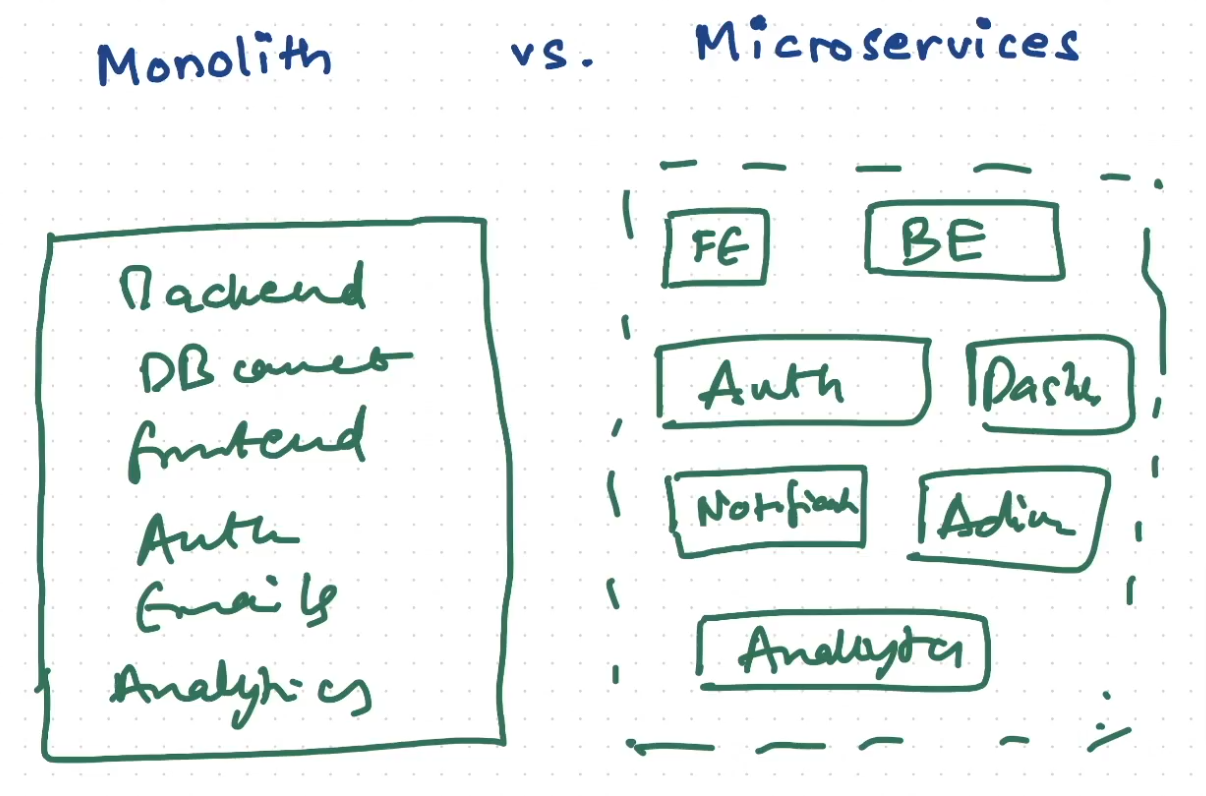 Monolith vs. Microservices
Backend
DB connect
Frontend
Auth
Emails
Analytics
FE BE
Auth Dash
Notificat
Admin
Analytics